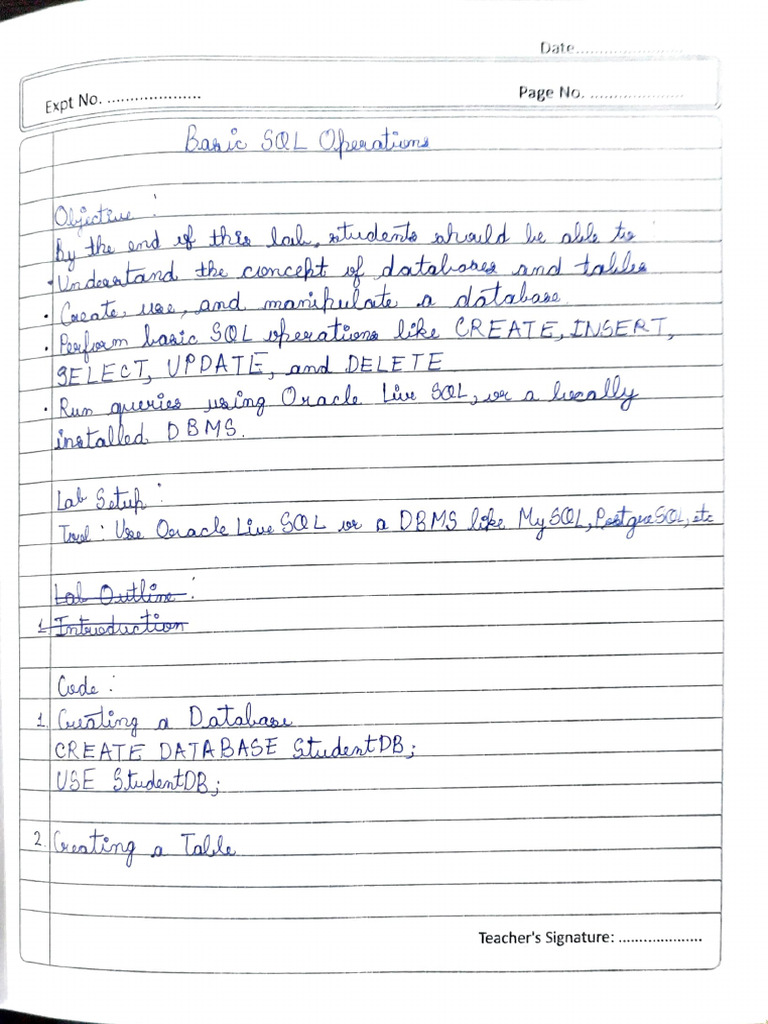 Date......................
Expt No. ....................
Page No. ....................
Basic SQL Operations
Objective :
By the end of this lab, students should be able to
• Understand the concept of databases and tables
• Create, use, and manipulate a database.
• Perform basic SQL operations like CREATE, INSERT,
SELECT, UPDATE, and DELETE
• Run queries using Oracle Live SQL, or a locally
installed DBMS.
Lab Setup :
Tool : Use Oracle Live SQL or a DBMS like MySQL, PostgreSQL, etc
Lab Outline :
1. Introduction
Code :
1. Creating a Database
CREATE DATABASE StudentDB;
USE StudentDB;
2. Creating a Table
Teacher's Signature: ....................